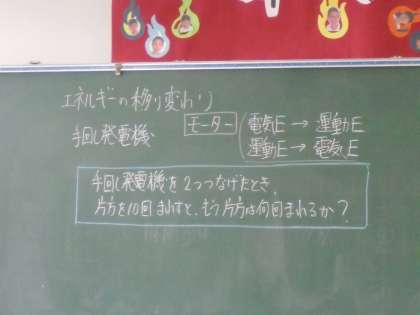 エネルギーの移り変わり
手回し発電機 モーター 電気E → 運動E
運動E → 電気E
手回し発電機を2つつなげたとき、
片方を10回まわすと、もう片方は何回まわるか?